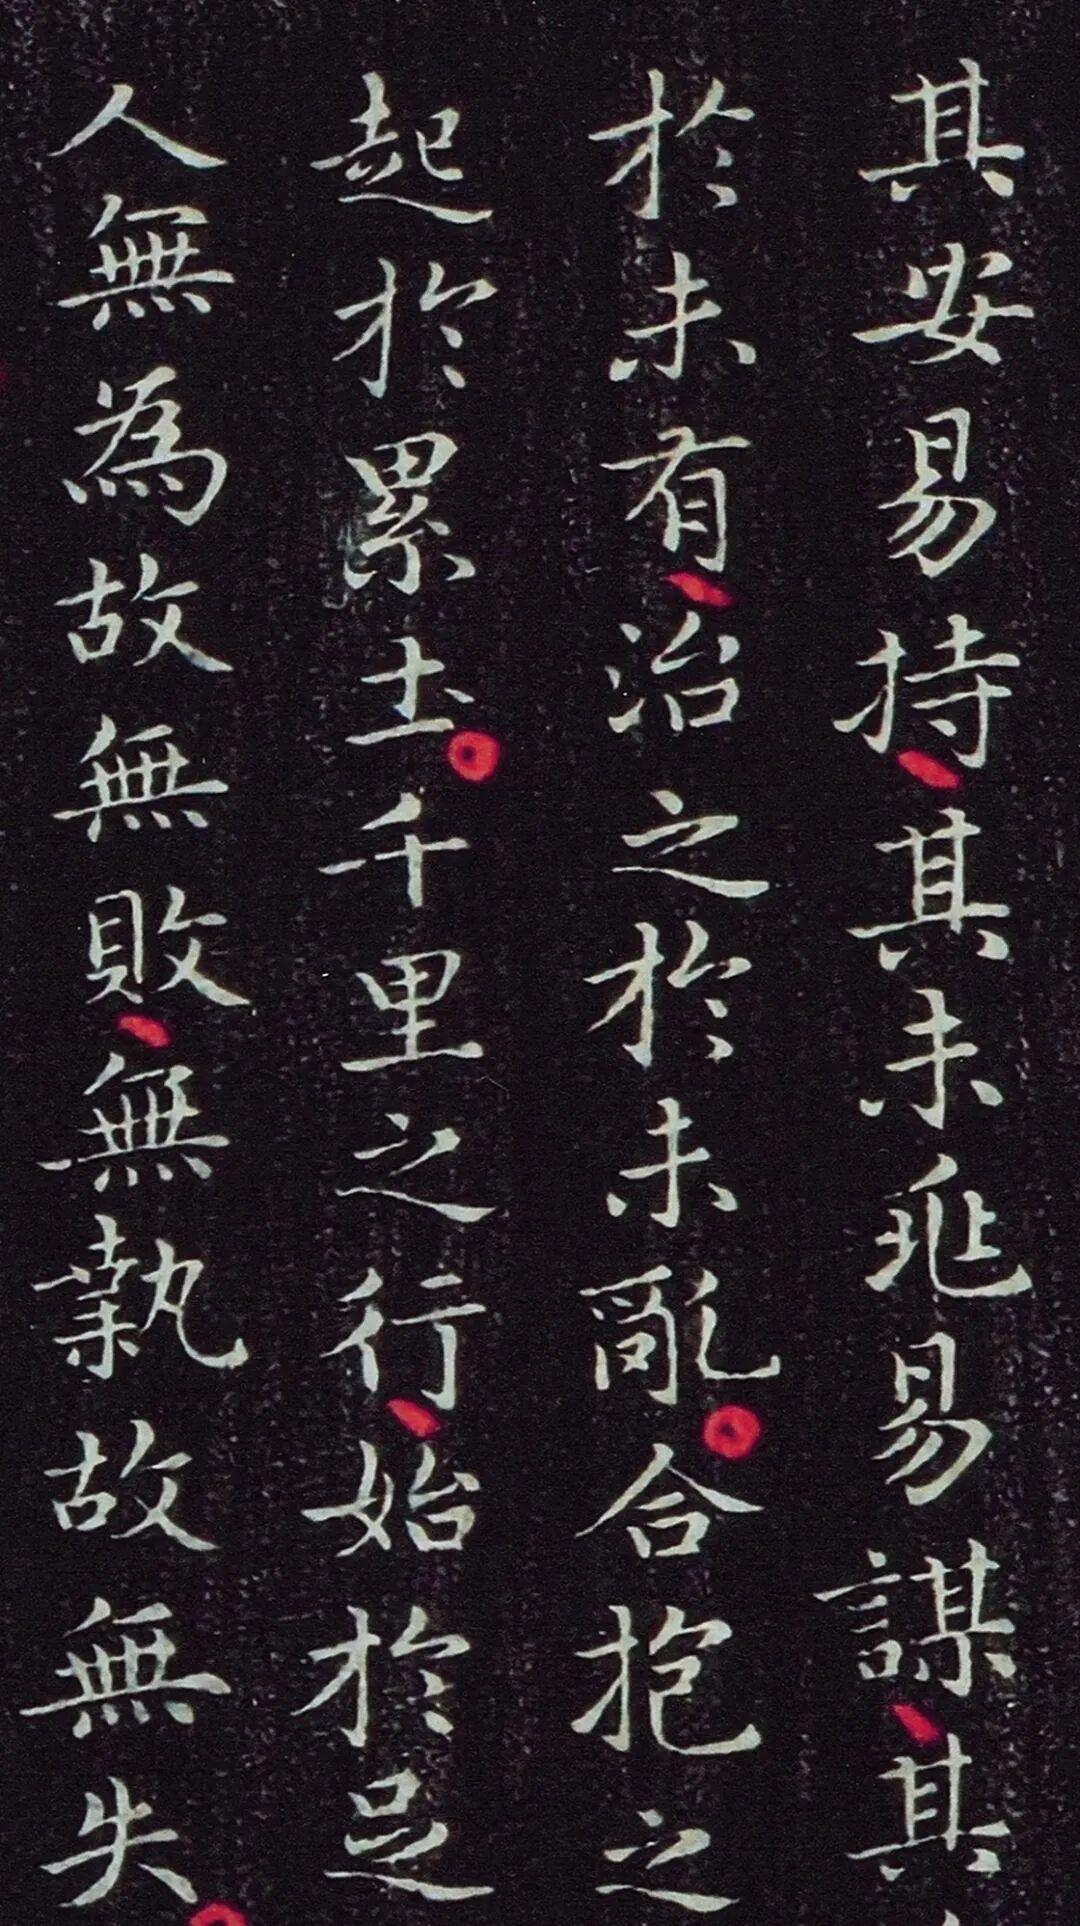 其安易持其未兆易謀其
於未有治之於未亂合抱之
起於累土千里之行始於足
人無為故無敗無執故無失